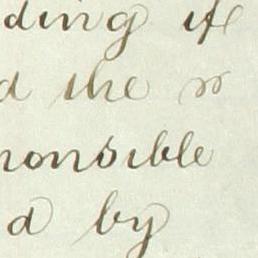 ding if
d the
onsible
d by